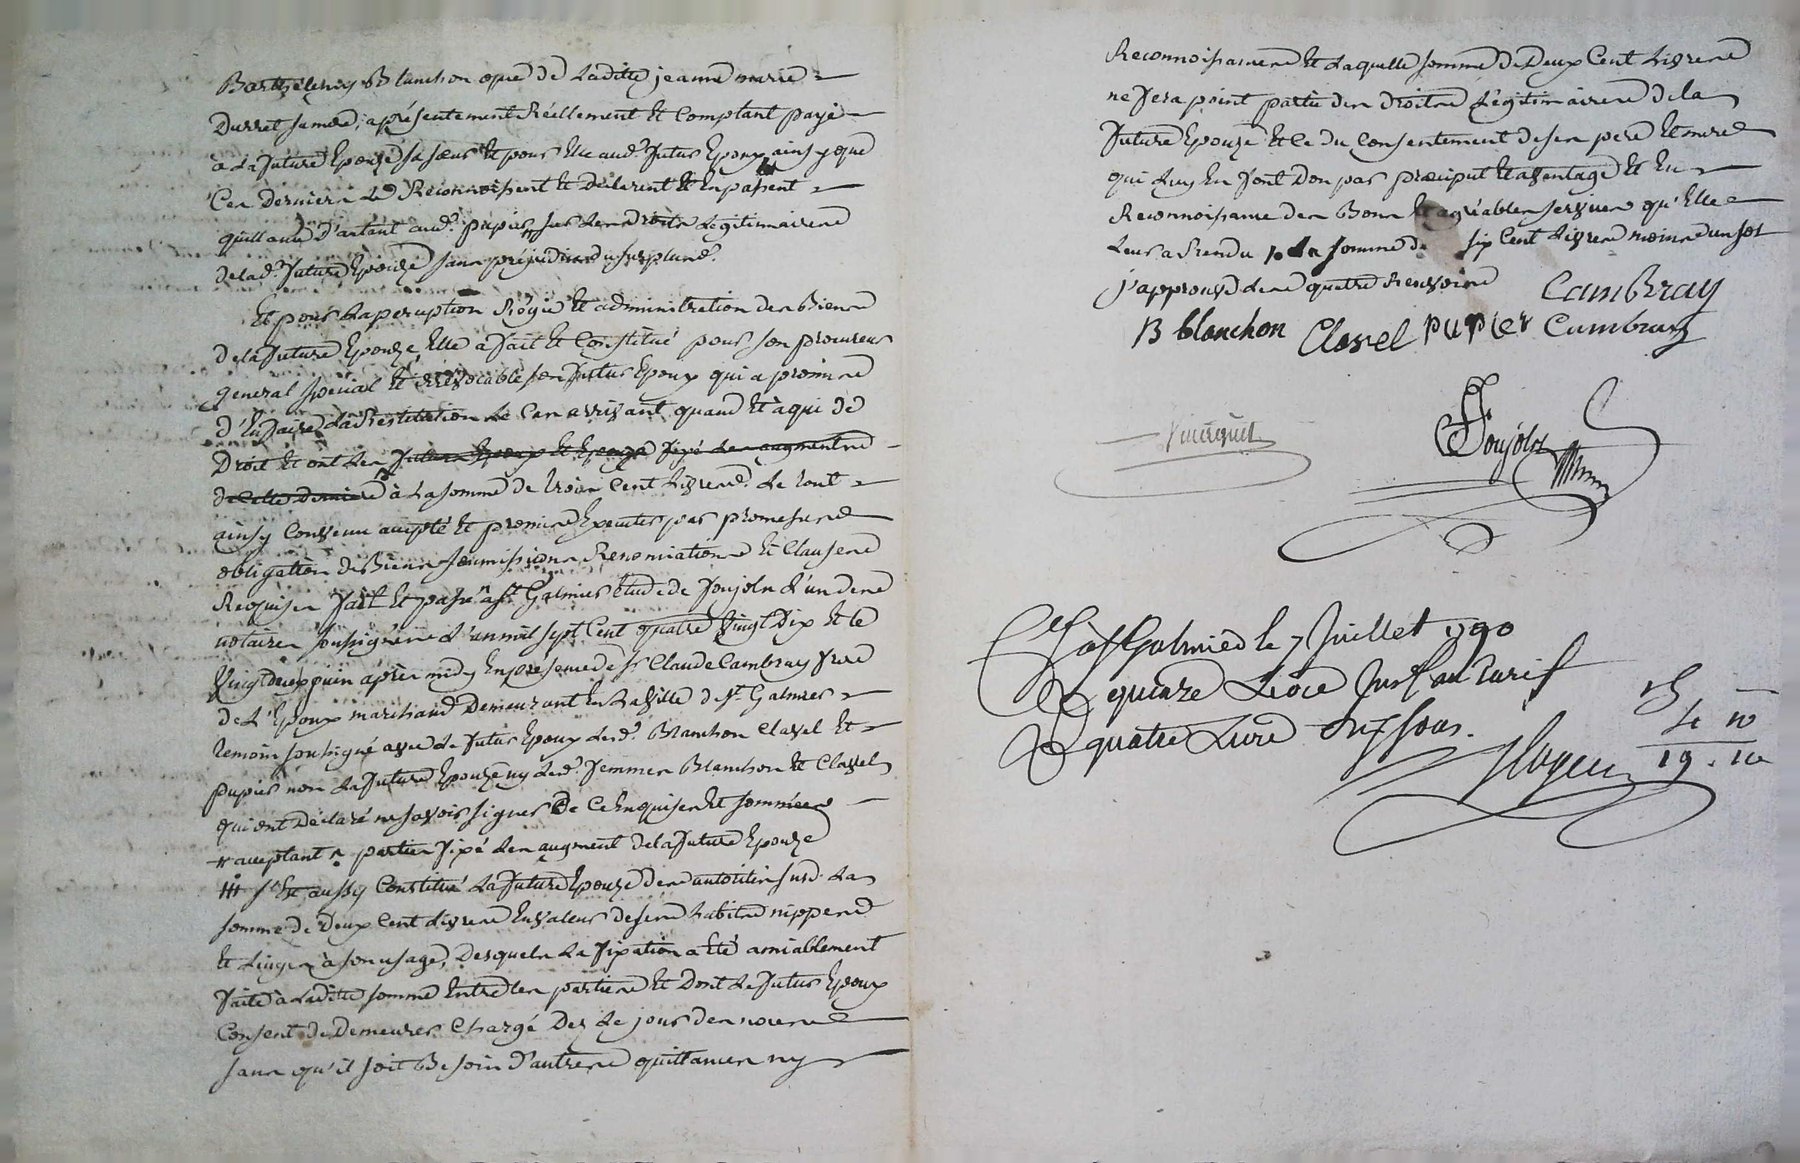 Barthélemy Blanchon époux de Laditte jeanne marie
Durret sa mere, a présentement Réellement Et Comptant payé
à La future Epouze sa sœur Et pour Elle aud. futur Epoux ainsy que
Ces Derniers Le Reconnoissent Et Declarent Et En passent
quittance D'autant aud. pupier sur Les Droits Légitimaires
de lad. future Epouze sans prejudice du surplus.
Et pour La perception Régie Et administration des Biens
De la future Epouze, Elle a fait Et Constitué pour son procureur
general special Et irrévocable son futur Epoux qui a promis
d'En faire La Restitution Le Cas arrivant quand Et à qui De
Droit Et ont Les futurs Epoux Et Epouze fixé Les augments
de cette Derniere à La somme de trois Cent Livres. Le tout
ainsy Convenu accepté Et promis Executer par promesses
obligation de Biens soumissions Renonciations Et Clauses
Requises fait Et passé à St Galmier Etude de Joujoln L'un des
notaires soussignés L'an mil sept Cent quatre Vingt Dix Et le
Vingt deux juin après midy En presence de Sr Claude Cambray frere
de L'Epoux marchand Demeurant En La Ville de St. Galmier
temoin soussigné avec Le futur Epoux Lesd. Blanchon Clavel Et
pupier non La future Epouze ny Lesd. femmes Blanchon Et Clavel
qui ont Déclaré ne savoir signer De Ce Enquises Et sommées
# acceptant parties fixé Les augment de la future Epouze
### s'Est aussy Constitué La future Epouze des autorités susd. La
somme de Deux Cent Livres En valeur de ses habits nippes
Et Linges à son usage, Desquels La fixation a Eté amiablement
faite à Laditte somme Entre Les parties Et Dont Le futur Epoux
Consent de Demeurer Chargé Dez Le jour des noces
sans qu'il soit Besoin D'autres quittances ny
Reconnoissances Et Laquelle somme de Deux Cent Livres
ne fera point partie des Droits Légitimaires de la
future Epouze Et Ce du Consentement de ses pere Et mere
qui Luy En font Don par préciput Et avantage Et En
Reconnoissance des Bons Et agréables services qu'Elle
Leurs a Rendu La somme de six Cent Livres moins un sol
j'approuve Les quatre Renvoire
Cambray
B blanchon Clavel pupier Cambray
Joujoln
C. a St Galmier le 7 Juillet 1790
R quinze Livre sauf au tarif
R quatre Livre dix sous.
15 —
4 10
19 . 10